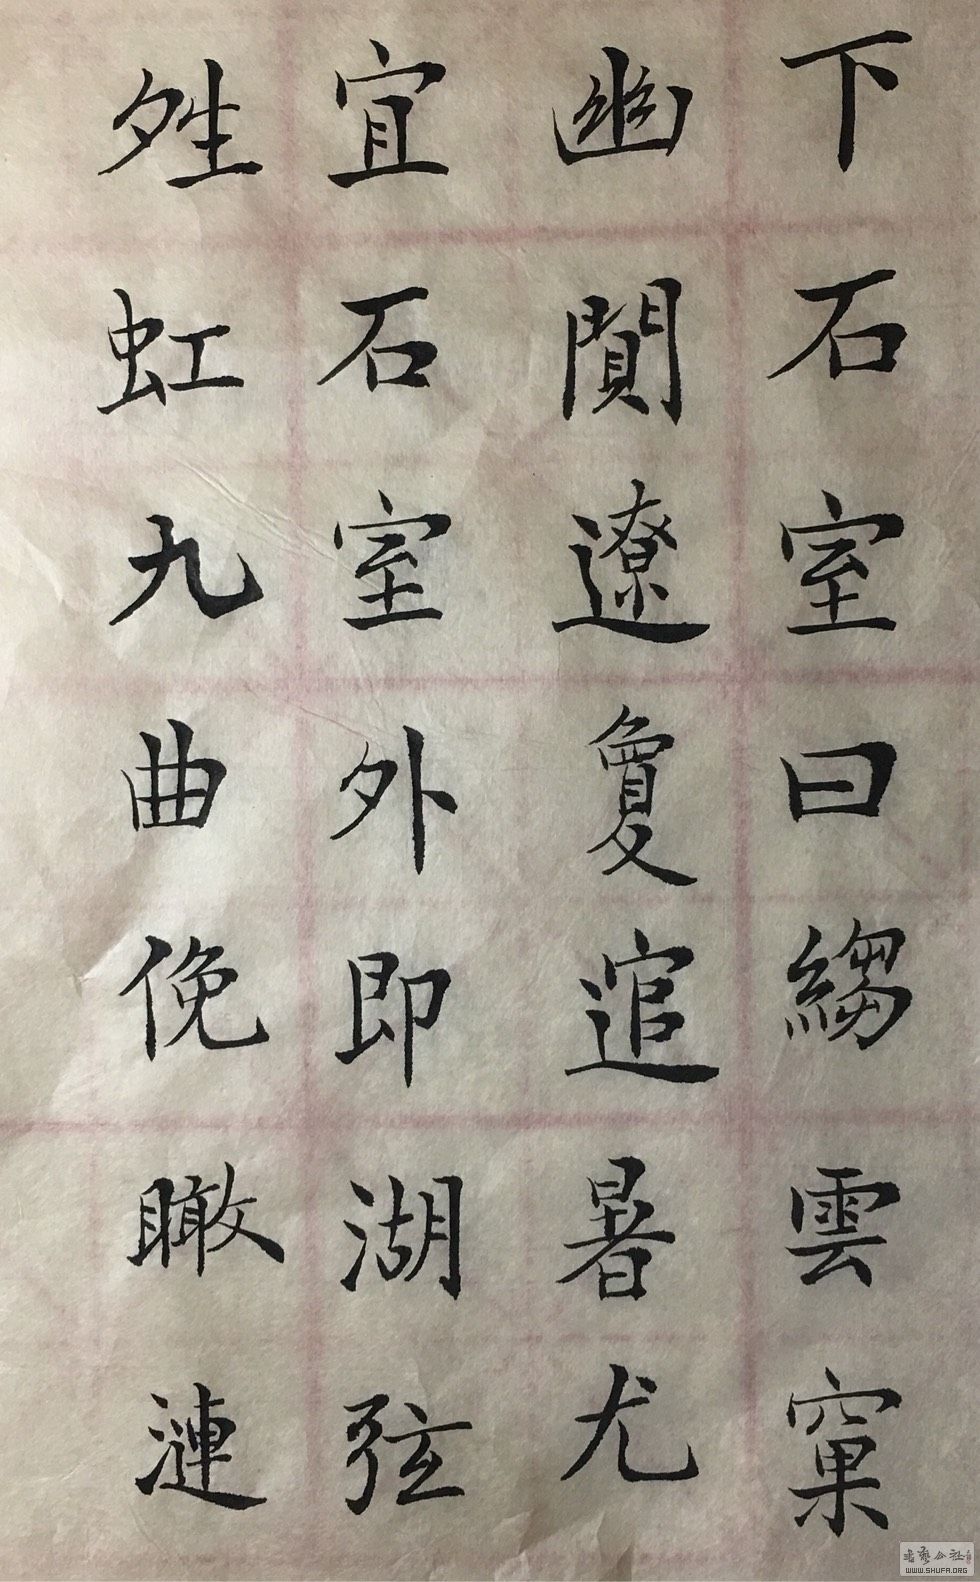 下石室曰縐雲窠
幽閴遼敻逭暑尤
宜石室外即湖弦
夝虹九曲俛瞰漣
WWW.SHUFA.ORG